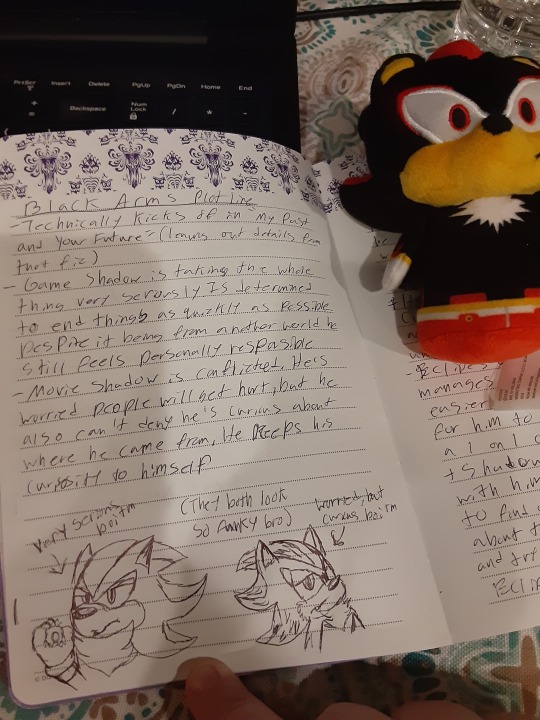 PrtScr Insert Delete PgUp PgDn Home End
+ = Backspace Num Lock / * -
Black Arms Plot line
- Technically Kicks of in My Past
and Your Future - (leaving out details from
that fic)
- Game Shadow is taking the whole
thing very seriously Is determined
to end things as quickly as Possible
Despite it being from another world he
still feels personally resposible
- Movie Shadow is conflicted, He's
worried people will get hurt, but he
also can't deny he's curious about
where he came from, He Keeps his
curiosity to himself
very serious
boi tm
(They both look
so funky bro)
worried, but
curious boi tm
Eclipse
manages
easier
for him to
a 1 on 1
with him
to find
about t
and try
Eclip